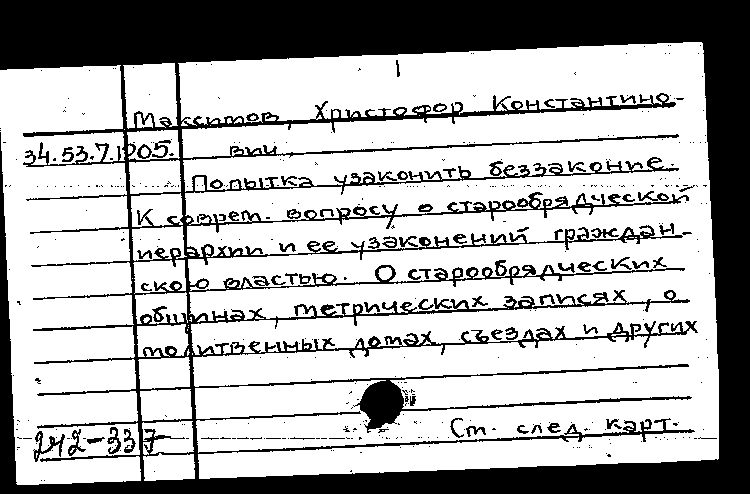 Максимов, Христофор Константино-
34.53.7.1205. вич,
Попытка узаконить беззаконие.
К соврем. вопросу о старообрядческой
иерархии и ее узаконений граждан-
скою властью. О старообрядческих
общинах, метрических записях, о
молитвенных домах, съездах и других
242-337
См. след. карт.